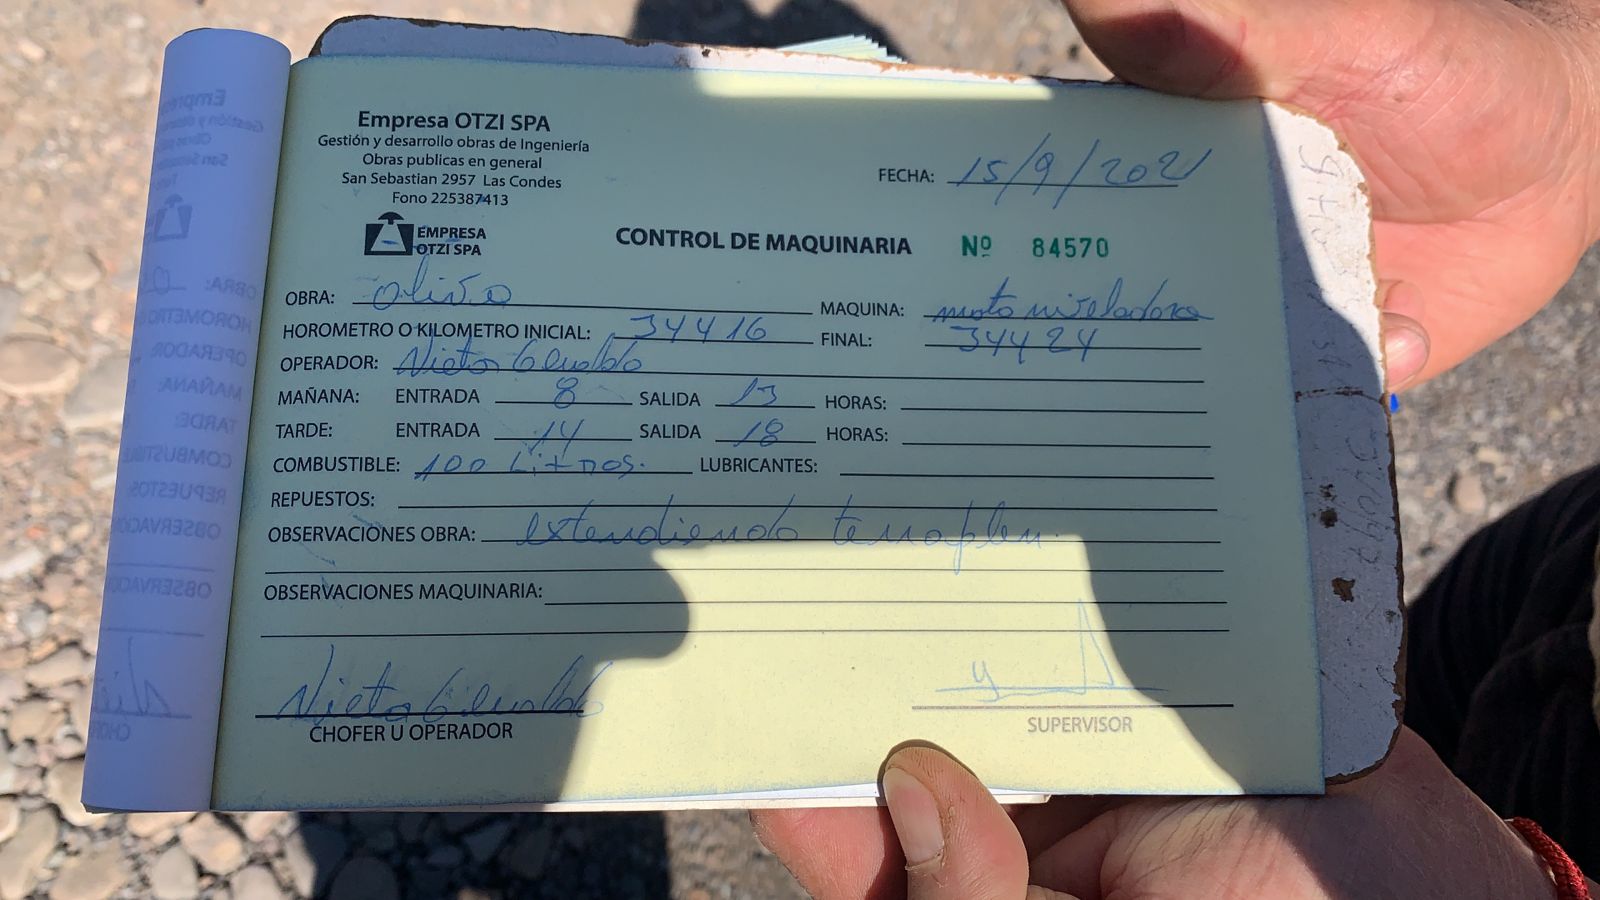 Empresa OTZI SPA
Gestión y desarrollo obras de Ingeniería
Obras publicas en general
San Sebastian 2957 Las Condes
Fono 225387413
FECHA: 15/9/2021
EMPRESA
OTZI SPA
CONTROL DE MAQUINARIA Nº 84570
OBRA:
MAQUINA: moto niveladora
HOROMETRO O KILOMETRO INICIAL: 34416 FINAL: 34424
OPERADOR: Nieto
MAÑANA: ENTRADA 8 SALIDA 13 HORAS:
TARDE: ENTRADA 14 SALIDA 18 HORAS:
COMBUSTIBLE: 100 Litros. LUBRICANTES:
REPUESTOS:
OBSERVACIONES OBRA: extendiendo terraplen.
OBSERVACIONES MAQUINARIA:
Nieto
CHOFER U OPERADOR
SUPERVISOR